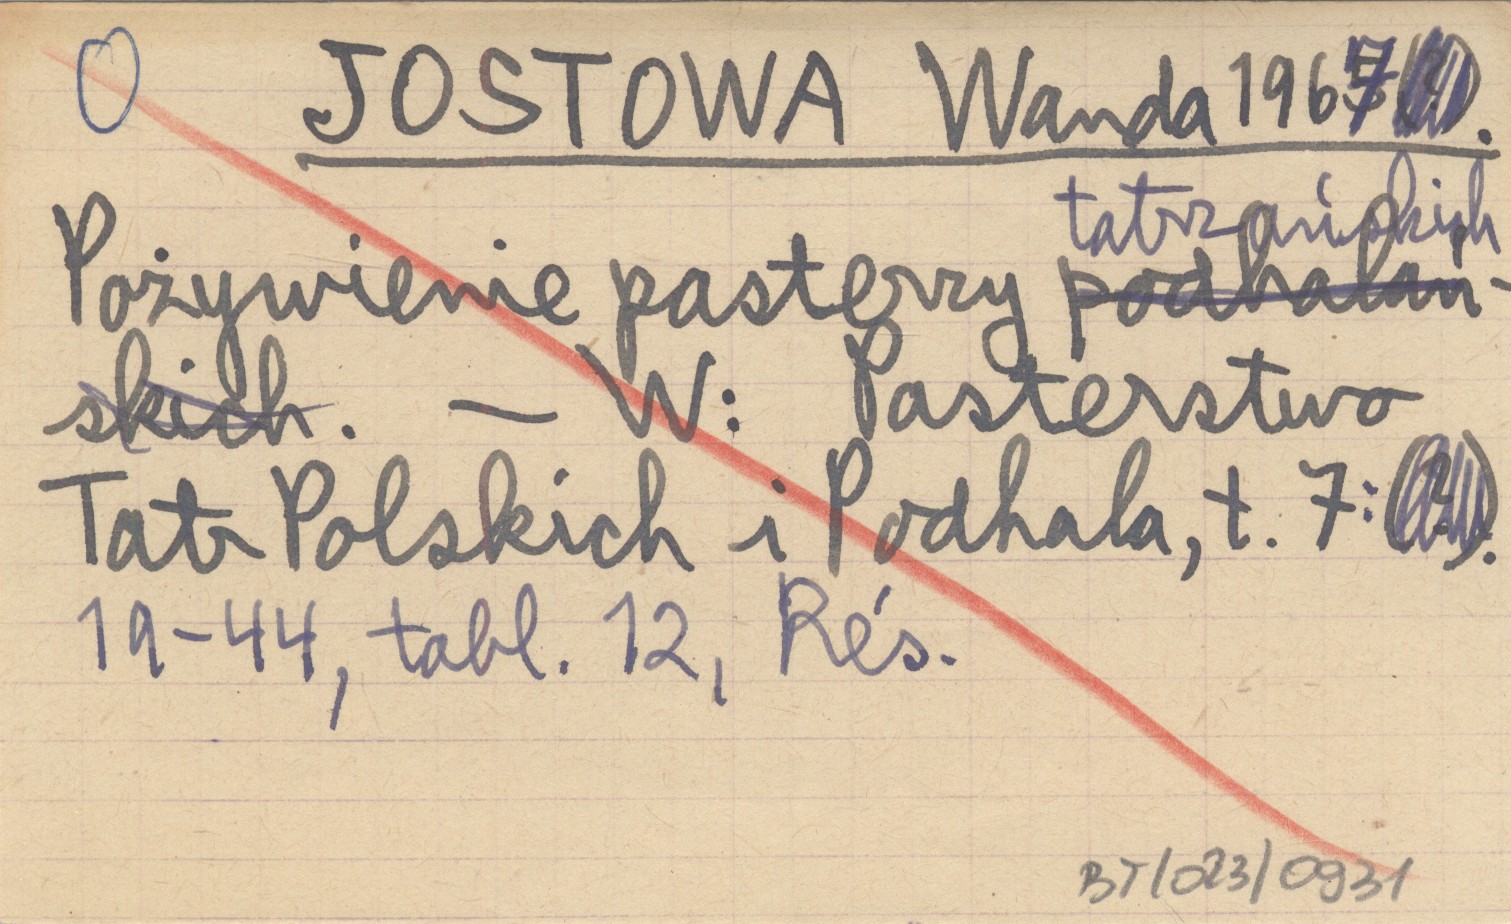 O JOSTOWA Wanda 1967.
tatrzańskich
Pożywienie pasterzy podhalań-
skich. — W: Pasterstwo
Tatr Polskich i Podhala, t. 7:
19-44, tabl. 12, Rés.
BT/023/0931